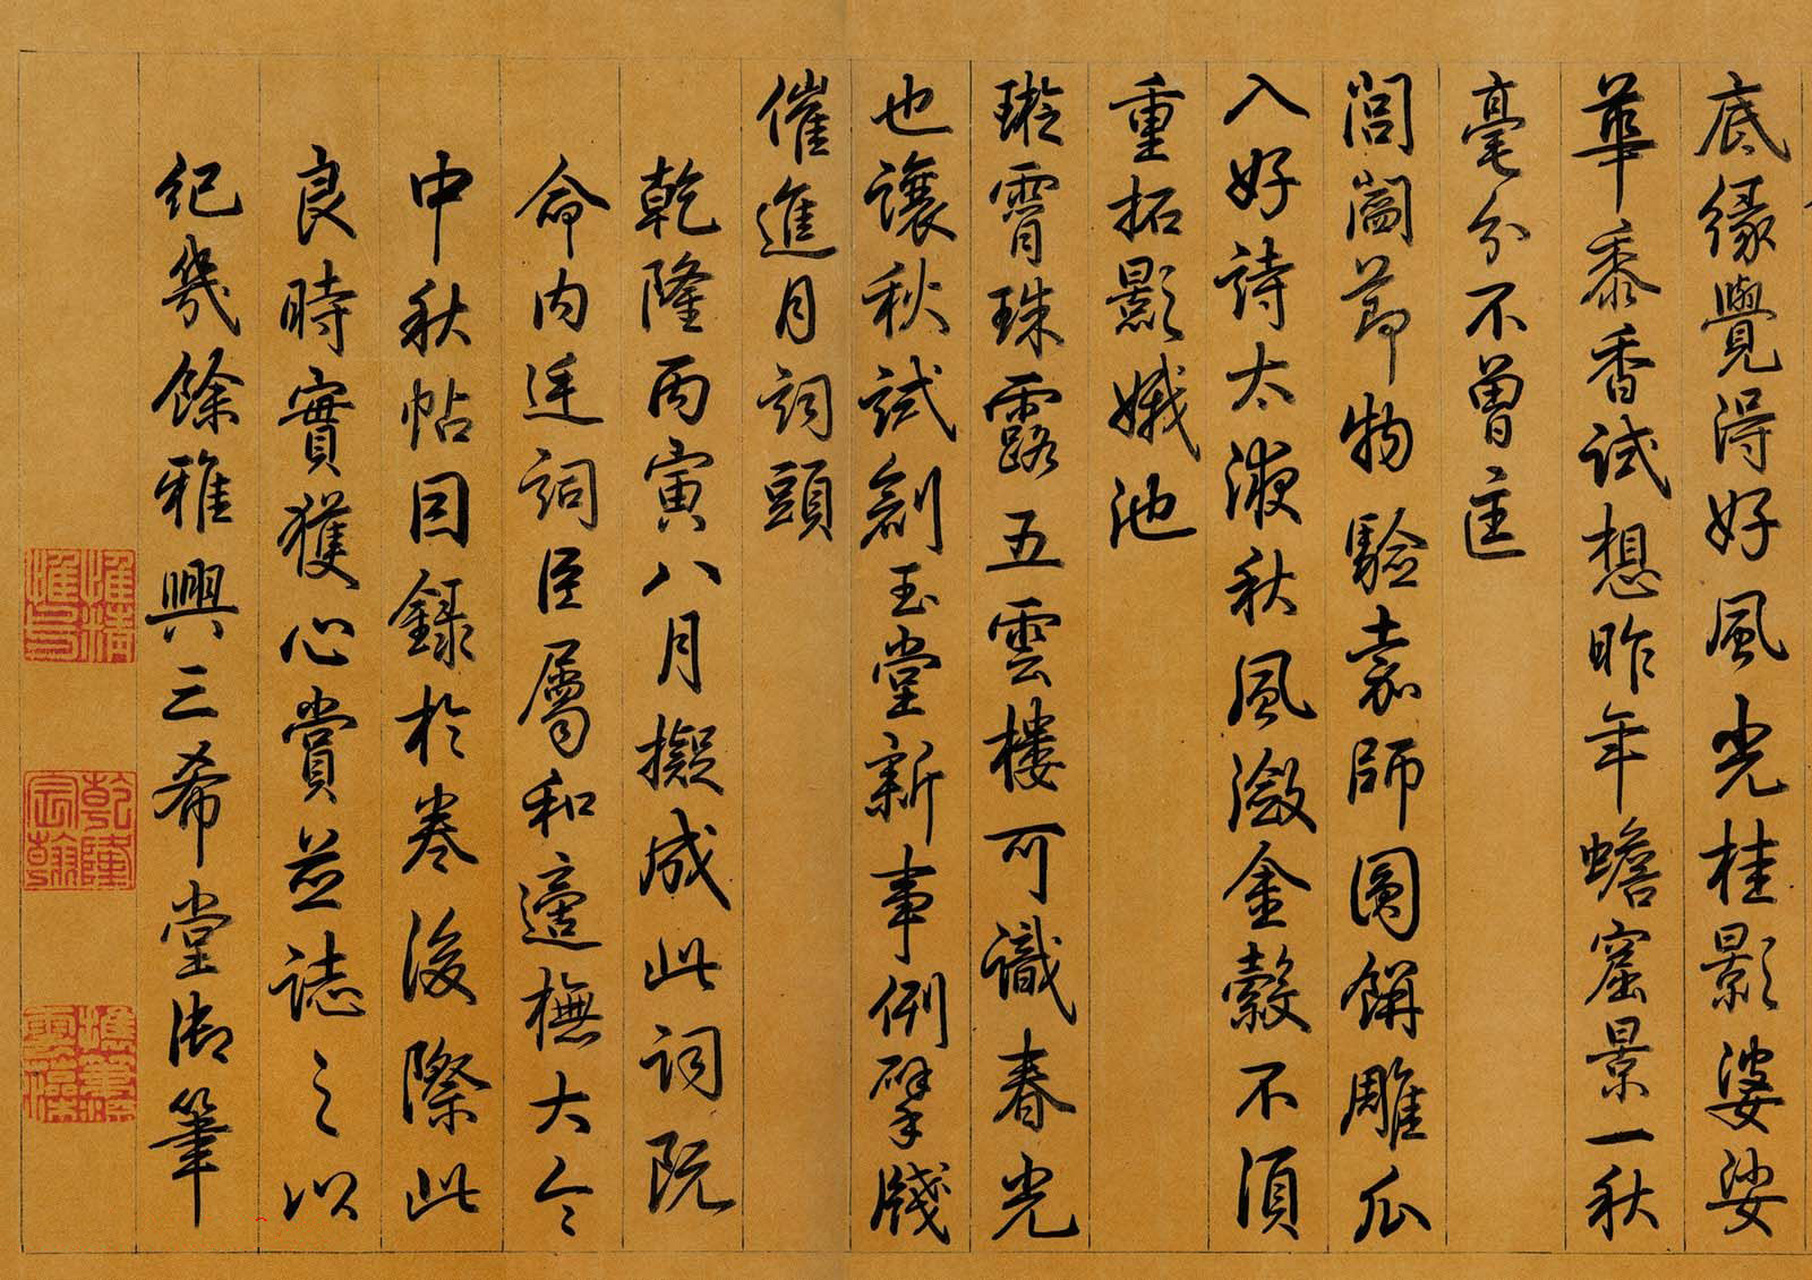 底緣覺得好風光桂影婆娑
華黍香試想昨年蟾窟景一秋
毫分不曾迋
閶闔節物驗袁師圓餅雕瓜
入好詩太液秋風瀲金縠不須
重拓影娥池
璇霄珠露五雲樓可識春光
也讓秋試創玉堂新事例擘牋
催進月詞頭
乾隆丙寅八月擬成此詞既
命內廷詞臣屬和適撫大令
中秋帖因錄於卷後際此
良時實獲心賞並誌之以
紀幾餘雅興三希堂御筆
乾隆宸翰